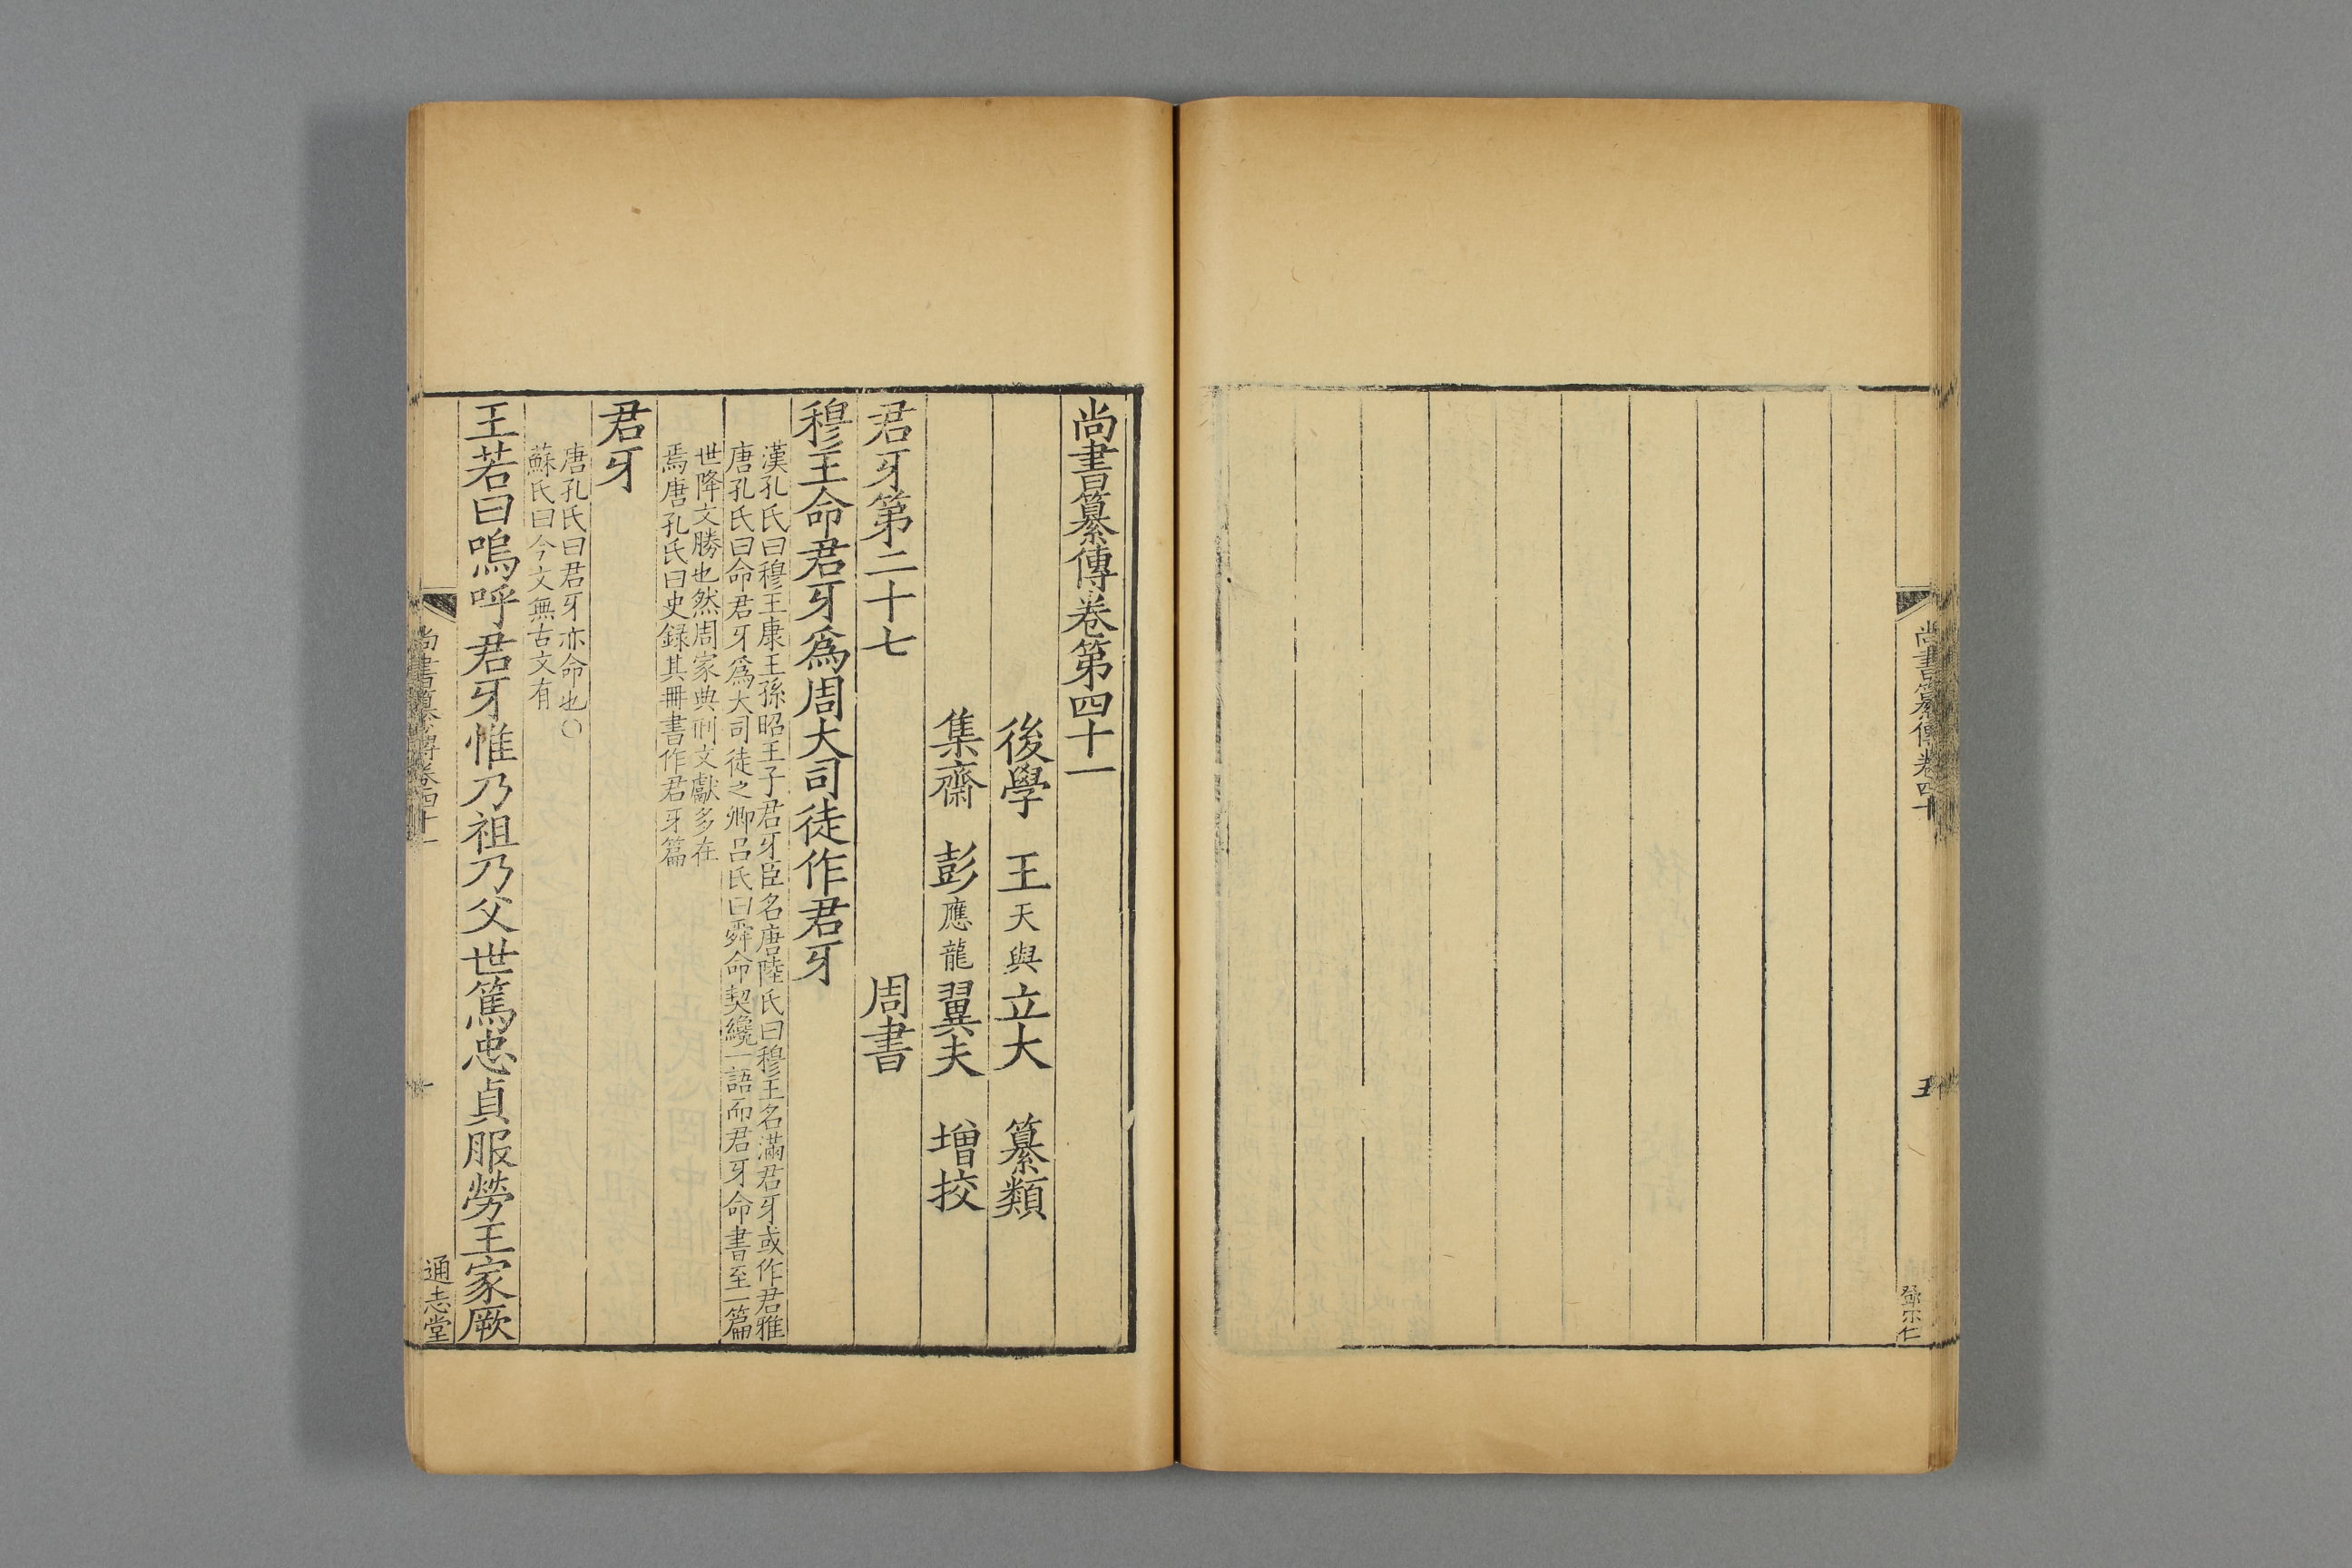 尚書纂傳卷四十
五
鄧宗仁
尚書纂傳卷第四十一
後學 王天與立大 纂類
集齋 彭應龍翼夫 增挍
君牙第二十七 周書
穆王命君牙爲周大司徒作君牙
漢孔氏曰穆王康王孫昭王子君牙臣名唐陸氏曰穆王名滿君牙或作君雅
唐孔氏曰命君牙爲大司徒之卿呂氏曰舜命契纔一語而君牙命書至一篇
世降文勝也然周家典刑文獻多在
焉唐孔氏曰史録其冊書作君牙篇
君牙
唐孔氏曰君牙亦命也○
蘇氏曰今文無古文有
王若曰嗚呼君牙惟乃祖乃父世篤忠貞服勞王家厥
尚書纂傳卷四十一
一
通志堂